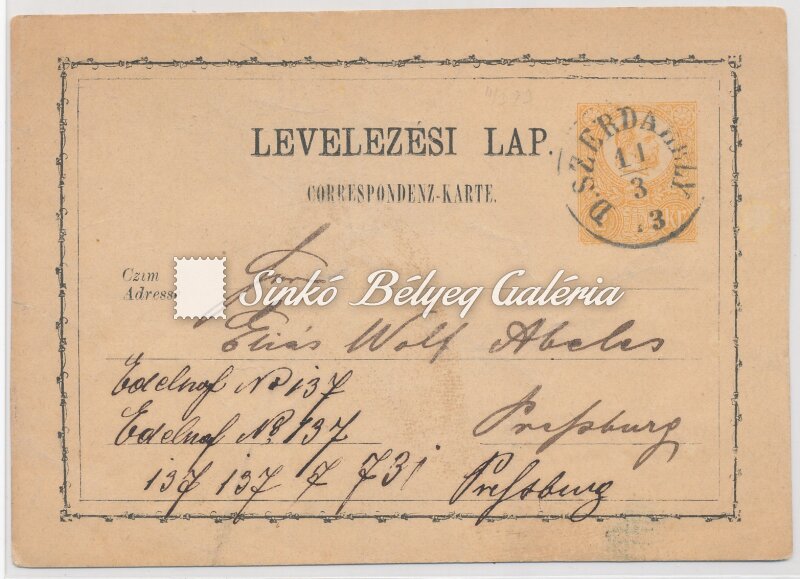 LEVELEZÉSI LAP.
CORRESPONDENZ-KARTE.
D.SZERDAHELY
11
3
73
Czim
Adresse
Sinkó Bélyeg Galéria
Eliás Wolf Abeles
Edelhof No 137
Edelhof No. 137 Preßburg
137 137 7 731 Preßburg